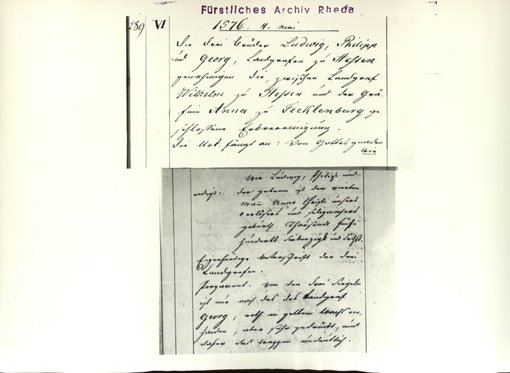 Fürstliches Archiv Rheda
289 VI 1576. 4. Mai
Die drei Brüder Ludwig, Philipp
und Georg, Landgrafen zu Hessen
genehmigen die, zwischen Landgraf
Wilhelm zu Hessen und der Grä-
fin Anna zu Tecklenburg ge-
schlossene Erbvereinigung.
Die Urk. fängt an: Von Gottes gnaden
Wir
Wir Ludwig, Philips und
endigt: der geben ist den vierten
Maii Anno Christi unsers
erlösers und seligmachers
geburth Thausendt fünf-
hundertt siebenzigk und sechs.
Eigenhändige Unterschrift der drei
Landgrafen.
Pergament. Von den drei Siegeln
ist nur noch das des Landgraf
Georg, roth in gelbem Wachs vor-
handen, aber sehr gedrückt, und
daher das Wappen undeutlich.